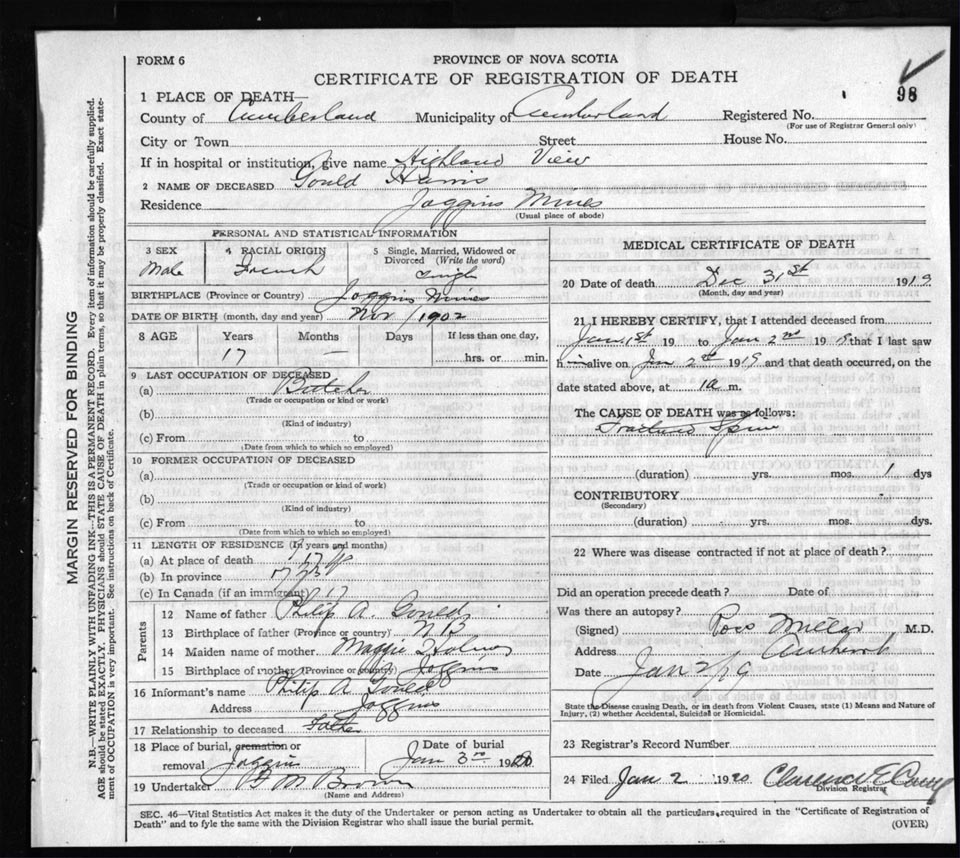 FORM 6
PROVINCE OF NOVA SCOTIA
CERTIFICATE OF REGISTRATION OF DEATH
98
1 PLACE OF DEATH—
County of Cumberland Municipality of Cumberland Registered No.
(For use of Registrar General only)
City or Town Street House No.
If in hospital or institution, give name Highland View
2 NAME OF DECEASED Gould Harris
Residence Joggins Mines
(Usual place of abode)
PERSONAL AND STATISTICAL INFORMATION
3 SEX Male
4 RACIAL ORIGIN French
5 Single, Married, Widowed or Divorced (Write the word) Single
BIRTHPLACE (Province or Country) Joggins Mines
DATE OF BIRTH (month, day and year) Nov 1902
8 AGE Years Months Days If less than one day,
17 — hrs. or min.
9 LAST OCCUPATION OF DECEASED
(a) Butcher
(Trade or occupation or kind or work)
(b)
(Kind of industry)
(c) From to
(Date from which to which so employed)
10 FORMER OCCUPATION OF DECEASED
(a)
(Trade or occupation or kind of work)
(b)
(Kind of industry)
(c) From to
(Date from which to which so employed)
11 LENGTH OF RESIDENCE (In years and months)
(a) At place of death 17
(b) In province
(c) In Canada (if an immigrant) 17
Parents
12 Name of father Philip A. Gould
13 Birthplace of father (Province or country) N B
14 Maiden name of mother Maggie Holmes
15 Birthplace of mother (Province or country) Joggins
16 Informant's name Philip A Gould
Address Joggins
17 Relationship to deceased Father
18 Place of burial, cremation or removal Joggins
Date of burial Jan 3rd 1920
19 Undertaker M Brown
(Name and Address)
MEDICAL CERTIFICATE OF DEATH
20 Date of death Dec 31st 1919
(Month, day and year)
21 I HEREBY CERTIFY, that I attended deceased from
Jan 1st 19 to Jan 2nd 19 that I last saw
h alive on Jan 2nd 1919 and that death occurred, on the
date stated above, at 1a m.
The CAUSE OF DEATH was as follows:
Fractured Spine
(duration) yrs. mos. 1 dys
CONTRIBUTORY
(Secondary)
(duration) yrs. mos. dys.
22 Where was disease contracted if not at place of death?
Did an operation precede death? Date of
Was there an autopsy?
(Signed) Ross Millar M.D.
Address Amherst
Date Jan 2/19
State the Disease causing Death, or in death from Violent Causes, state (1) Means and Nature of
Injury, (2) whether Accidental, Suicidal or Homicidal.
23 Registrar's Record Number
24 Filed Jan 2 1920 Clarence E
Division Registrar
SEC. 46—Vital Statistics Act makes it the duty of the Undertaker or person acting as Undertaker to obtain all the particulars required in the "Certificate of Registration of
Death" and to fyle the same with the Division Registrar who shall issue the burial permit.
(OVER)
MARGIN RESERVED FOR BINDING
N.B.—WRITE PLAINLY WITH UNFADING INK—THIS IS A PERMANENT RECORD. Every item of information should be carefully supplied.
AGE should be stated EXACTLY. PHYSICIANS should STATE CAUSE OF DEATH in plain terms, so that it may be properly classified. Exact state-
ment of OCCUPATION is very important. See instructions on back of Certificate.